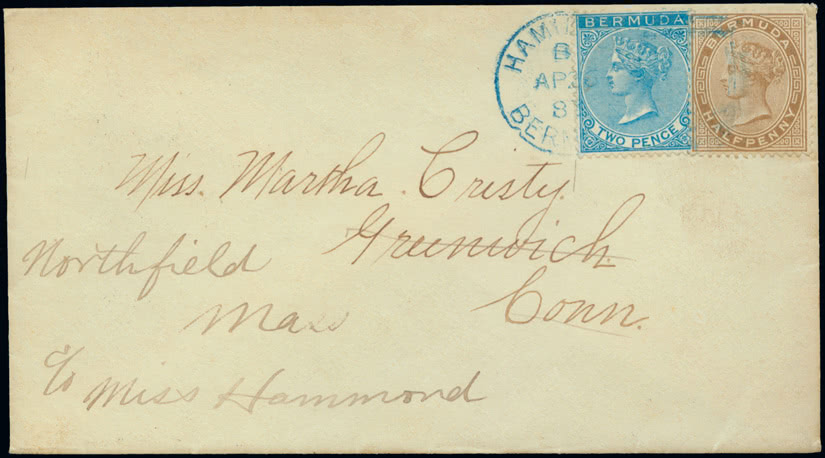 HAMIL
B
AP 2
8
BERM
BERMUDA
TWO PENCE
BERMUDA
HALFPENNY
Miss. Martha Cristy.
Greenwich.
Conn.
Northfield
Mass
c/o Miss Hammond